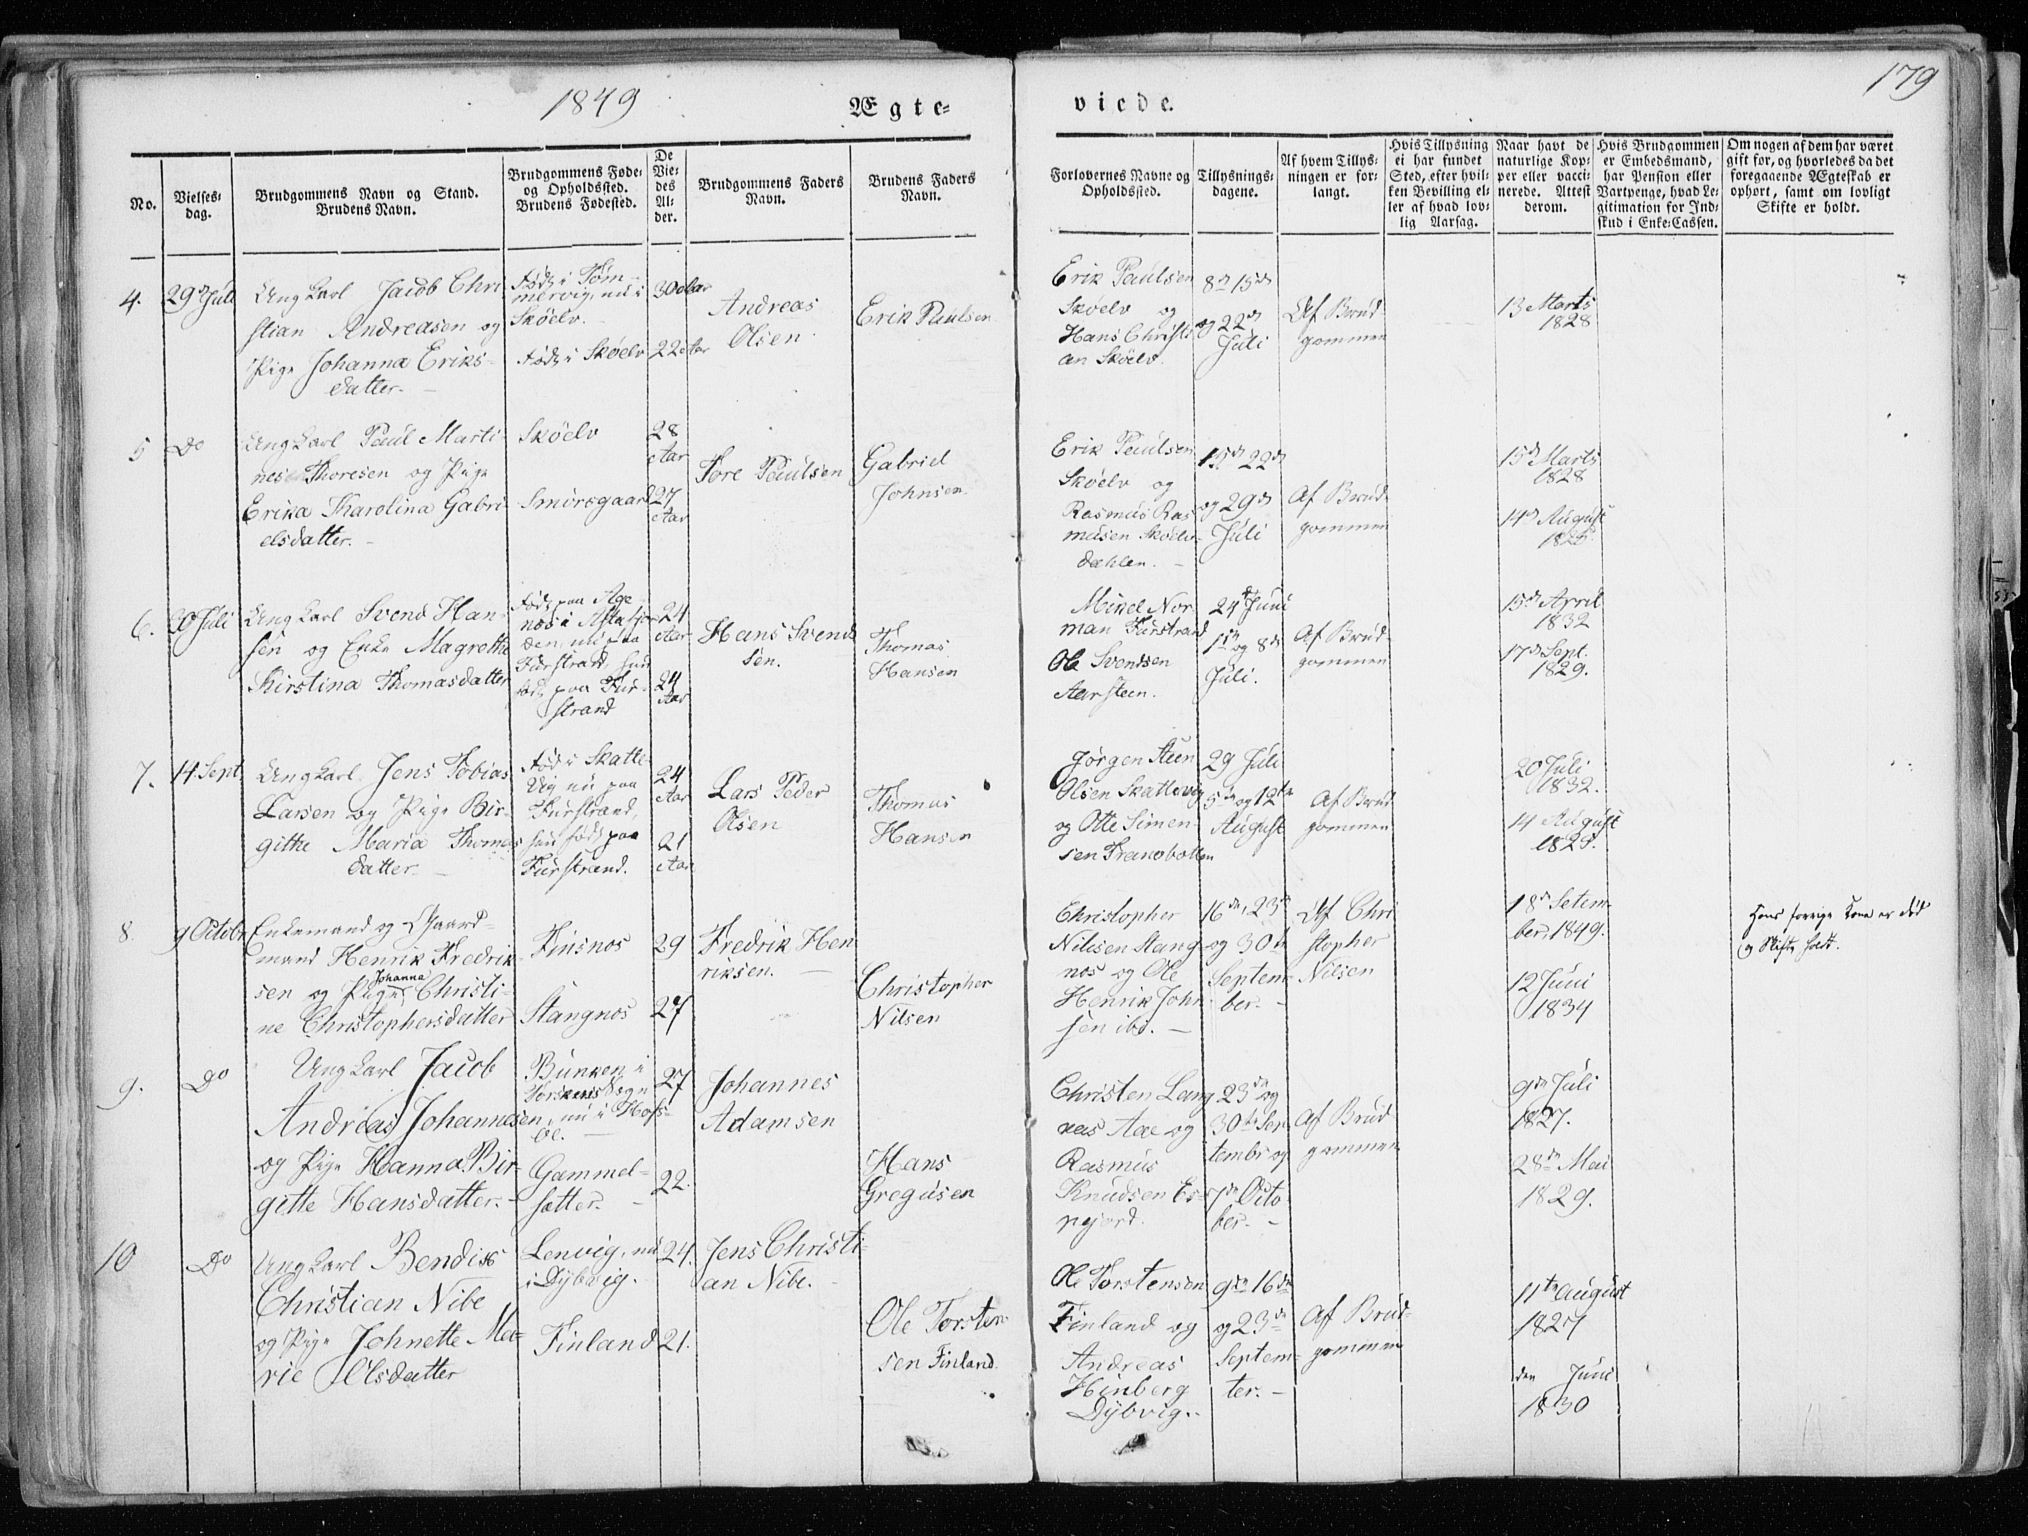 1849
Ægte-
viede.
179
No.
Vielses-
dag.
Brudgommens Navn og Stand.
Brudens Navn.
Brudgommens Føde-
og Opholdssted.
Brudens Fødested.
De
Vie-
des
Al-
der.
Brudgommens Faders
Navn.
Brudens Faders
Navn.
Forlovernes Navne og
Opholdssted.
Tillysnings-
dagene.
Af hvem Tillys-
ningen er for-
langt.
Hvis Tillysning
ei har fundet
Sted, efter hvil-
ken Bevilling el-
ler af hvad lov-
lig Aarsag.
Naar havt de
naturlige Kop-
per eller vacci-
nerede. Attest
derom.
Hvis Brudgommen
er Embedsmand,
har Pension eller
Vartpenge, hvad Le-
gitimation for Ind-
skud i Enke-Cassen.
Om nogen af dem har været
gift før, og hvorledes da det
foregaaende Ægteskab er
ophørt, samt om lovligt
Skifte er holdt.
4.
29de Juli
Ungkarl Jacob Chri
stian Andreasen og
Pige Johanna Eriks-
datter.
Født i Tøm-
mervig, nu i
Skøelv.
Født i Skøelv
30 Aar
22 Aar
Andreas
Olsen
Erik Paulsen
Erik Paulsen
Skøelv og
Hans Christi
an Skøelv.
8de 15de
og 22de
Juli
Af Brud-
gommen
13 Marts
1828
5
Do
Ungkarl Paul Marti-
nesen Thoresen og Pige
Erika Karolina Gabri
elsdatter.
Skøelv
Smørsgaard
28
Aar
27
Aar
Tore Paulsen
Gabriel
Johnsen.
Erik Paulsen
Skøelv og
Rasmus Ras
musen Skøelv-
dahlen.
15de 22de
og 29de
Juli
Af Brud-
gommen
15de Marts
1828
14de August
6.
Juli
Ungkarl Svend Han-
sen og Enke Magrethe
Kirstina Thomasdatter
Født paa
nes i Astafjor
den, nu paa
Furstrand, hun
født paa Fur-
strand
24
Aar
24
Aar
Hans Svend
sen.
Thomas
Hansen
Mikel Nor
man Furstrand
Ole Svendsen
Aarsteen.
24de Juni
1ste og 8de
Juli.
Af Brud-
gommen
15de April
1832
17de Sept.
1829.
7.
14 Sept.
Ungkarl Jens Tobias
Larsen og Pige Bir-
githe Maria Thomas
datter.
Født i Skatte
Vig nu paa
Furstrand,
hun født paa
Furstrand.
24
Aar
21
Aar
Lars Peder
Olsen
Thomas
Hansen
Jørgen Steen
Olsen Skattevig
og Otte Simen-
sen Tranobotten
29 Juli
5te og 12te
August
Af Brud
gommen
20 Juli
1832.
14 August
8.
9 Octobr
Enkemand og Gaard-
mand Henrik Fredrik-
sen og Pige Johanna Christi-
ne Christophersdatter
Finsnos
Stangnos
29
27
Fredrik Hen
riksen.
Christopher
Nilsen
Christopher
Nilssen Stang
nos og Ole
Henrik John
sen ibd.
16de, 23de
og 30te
Septem
ber.
Af Chri
stopher
Nilsen
18de Setem-
ber, 1849.
12 Juni
1834
Hans forrige Kone er død
og Skifte holdt.
9.
Do
Ungkarl Jacob
Andreas Johannesen
og Pige Hanna Bir-
gitte Hansdatter.
Bunken i
Torskens Sogn
nu i Hofs-
øe.
Gammel-
sætter.
27
22.
Johannes
Adamsen
Hans
Gregusen
Christen Lang
nes Aae og
Rasmus
Knudsen Es-
pejord.
23de og
30te Sep
tembr og
7de Octo
ber.
Af Brud
gommen
9de Juli
1827.
28de Mai
1829.
10
Do
Ungkarl Bendix
Christian Nibe
og Pige Johnette Ma-
rie Olsdatter
Lenvig, nu
i Dybvig.
Finland
24.
21.
Jens Christi-
an Nibe.
Ole Torsten
sen Finland.
Ole Torstensen
Finland og
Andreas
Hinberg
Dybvig.
9de 16de
og 23de
Septem-
ter.
Af Brud-
gommen
11te August
1827
den Juni
1830